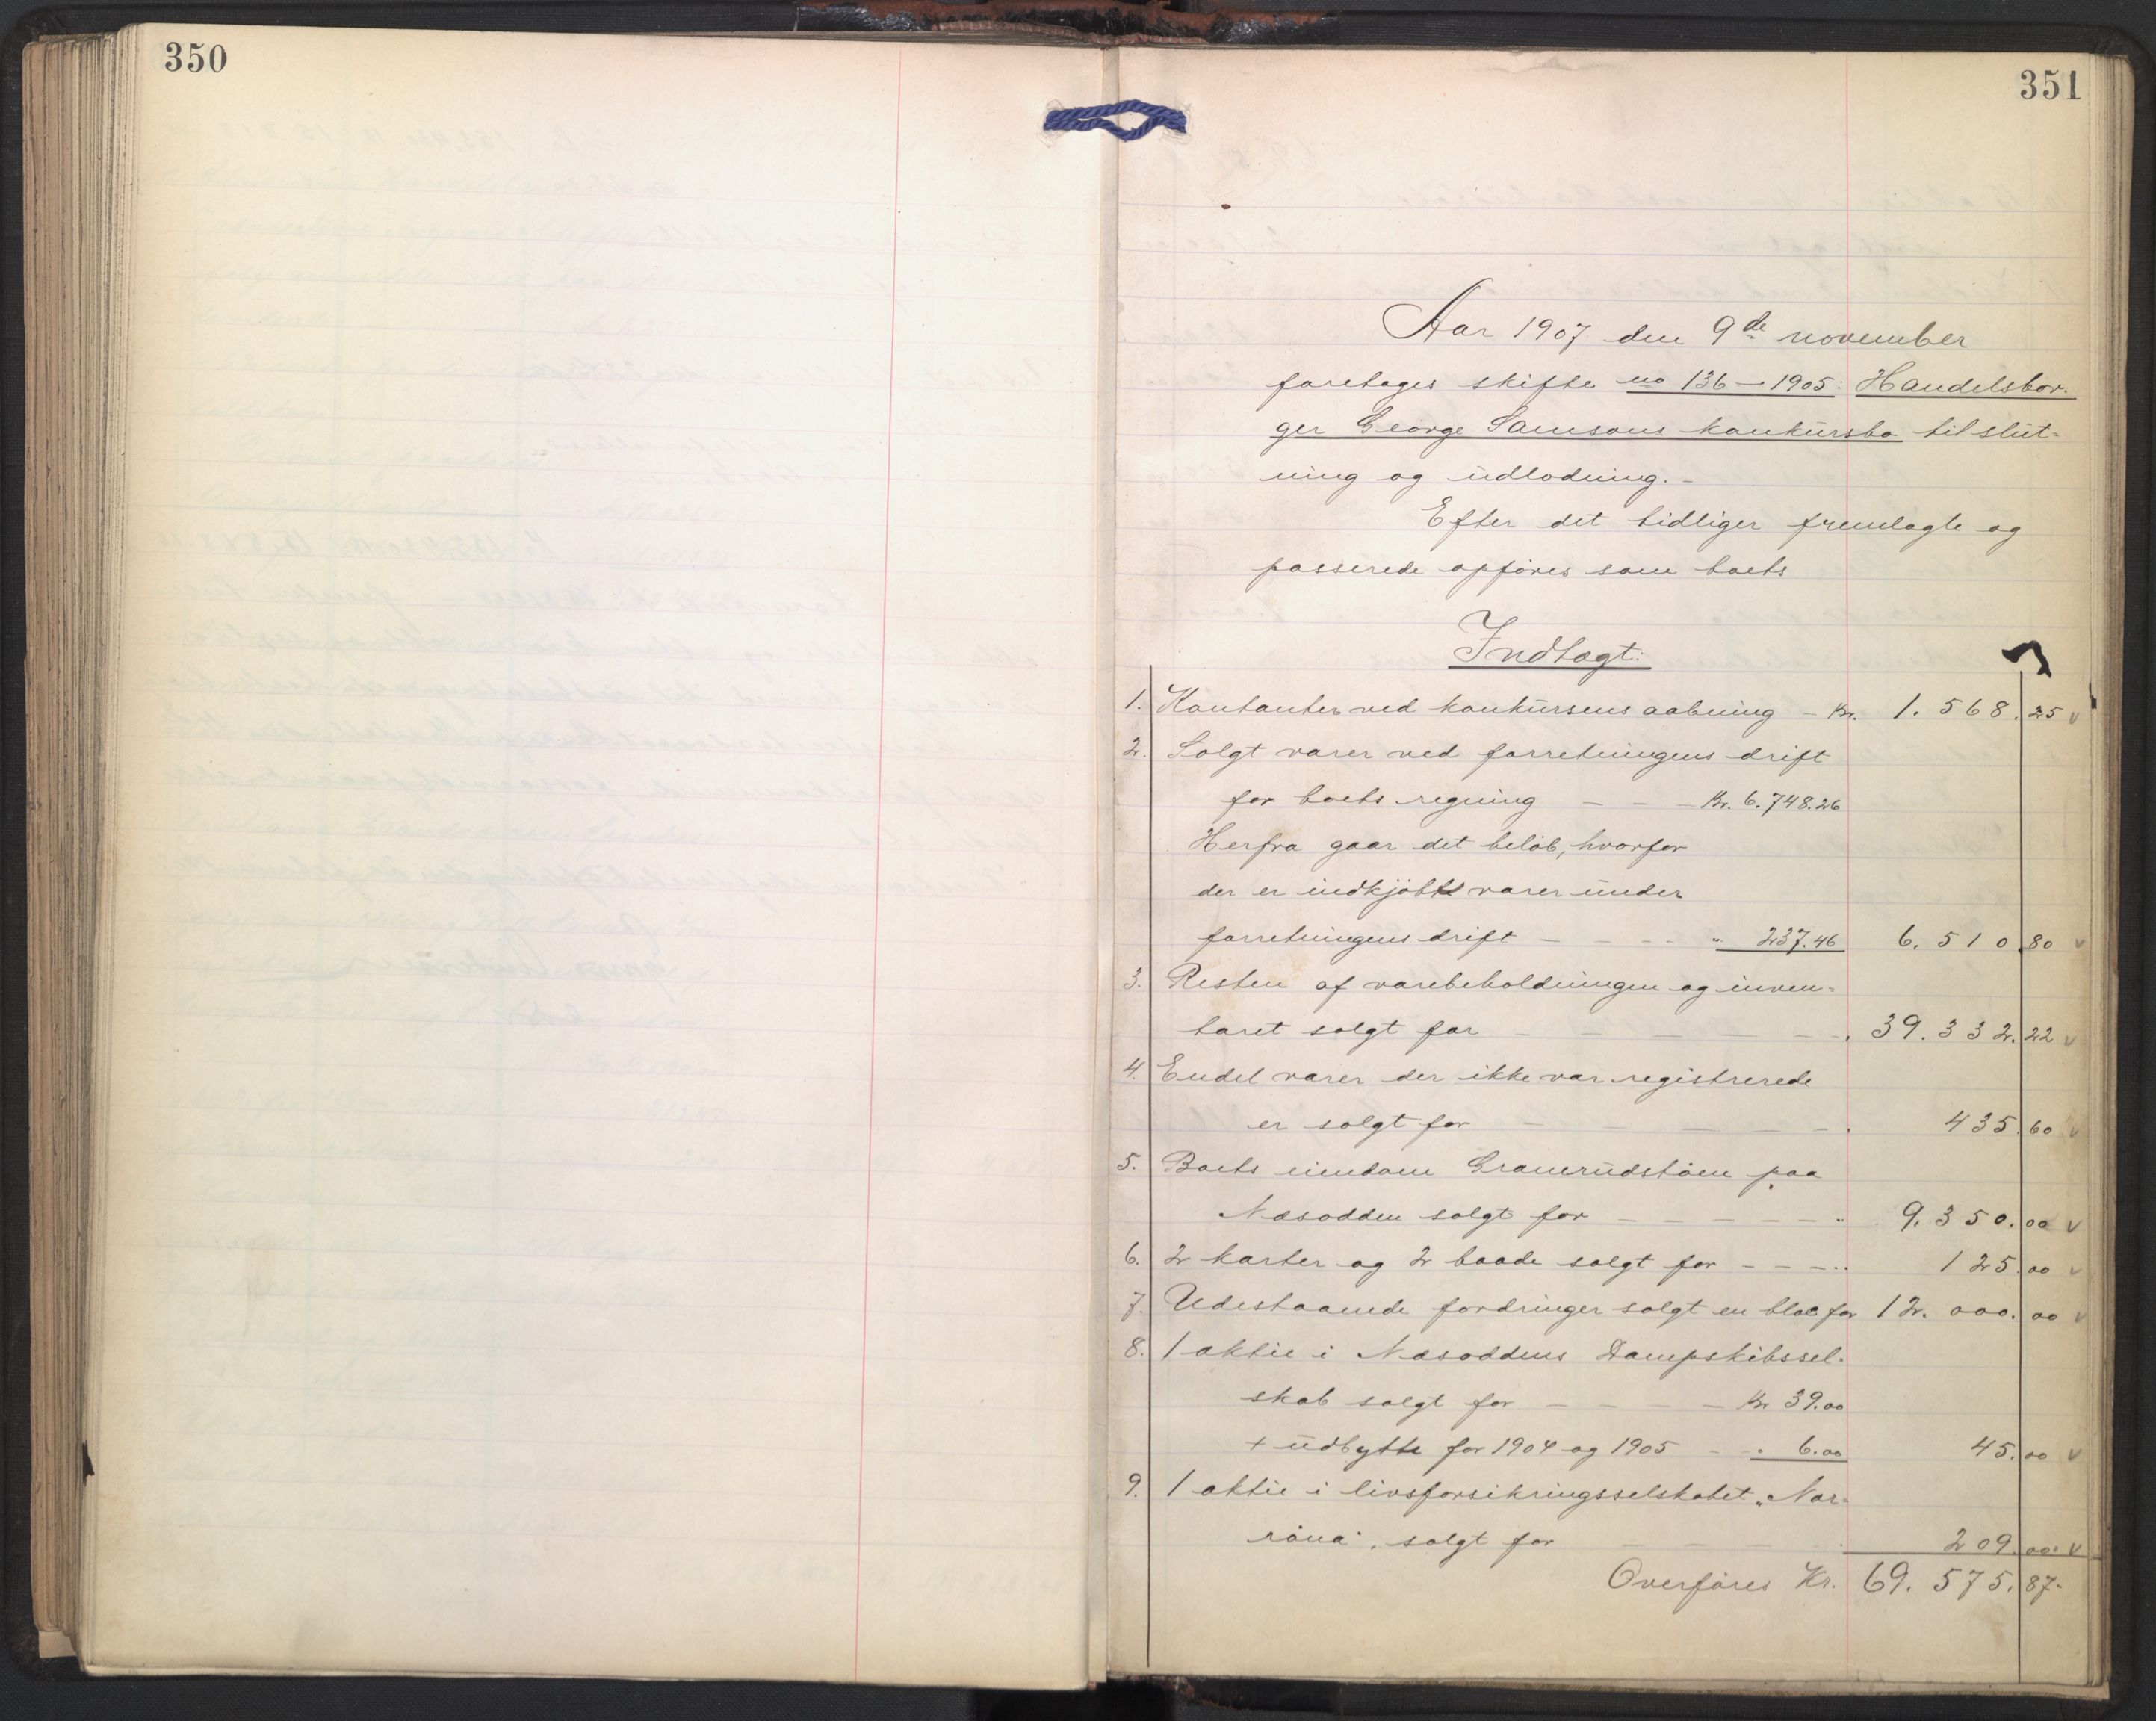 350
351
Aar 1907 den 9de november
foretoges skifte no 136 – 1905: Handelsbor-
ger George Samsons konkursbo til slut-
ning og udlodning. -
Efter det tidliger fremlagte og
passerede opføres som boets
Indtægt:
1. Kontanter ved konkursens aabning – Kr. 1.568.25 v
2. Solgt varer ved forretningens drift
for boets regning – – – Kr. 6.748.26
Herfra gaar det beløb, hvorfor
der er indkjøbt varer under
forretningens drift – – – – " 237.46 6.510.80 v
3. Resten af varebeholdningen og inven-
taret solgt for – – – – – – . 39.332.22 v
4. Endel varer der ikke var registrerede
er solgt for – – – – – . 435.60 v
5. Boets eiendom Granerudstøen paa
Næsodden solgt for – – – – – – " 9.350.00 v
6. 2 karter og 2 baade solgt for – – – " 125.00 v
7. Udestaaende fordringer solgt en bloc for 12.000.00 v
8. 1 aktie i Næsoddens Dampskibssel-
skab solgt for – – – – – Kr 39.00
+ udbytte for 1904 og 1905 – " 6.00 45.00 v
9. 1 aktie i livsforsikringsselskabet „Nor-
røna“, solgt for – – – – . 209.00 v
Overføres Kr. 69.575.87-